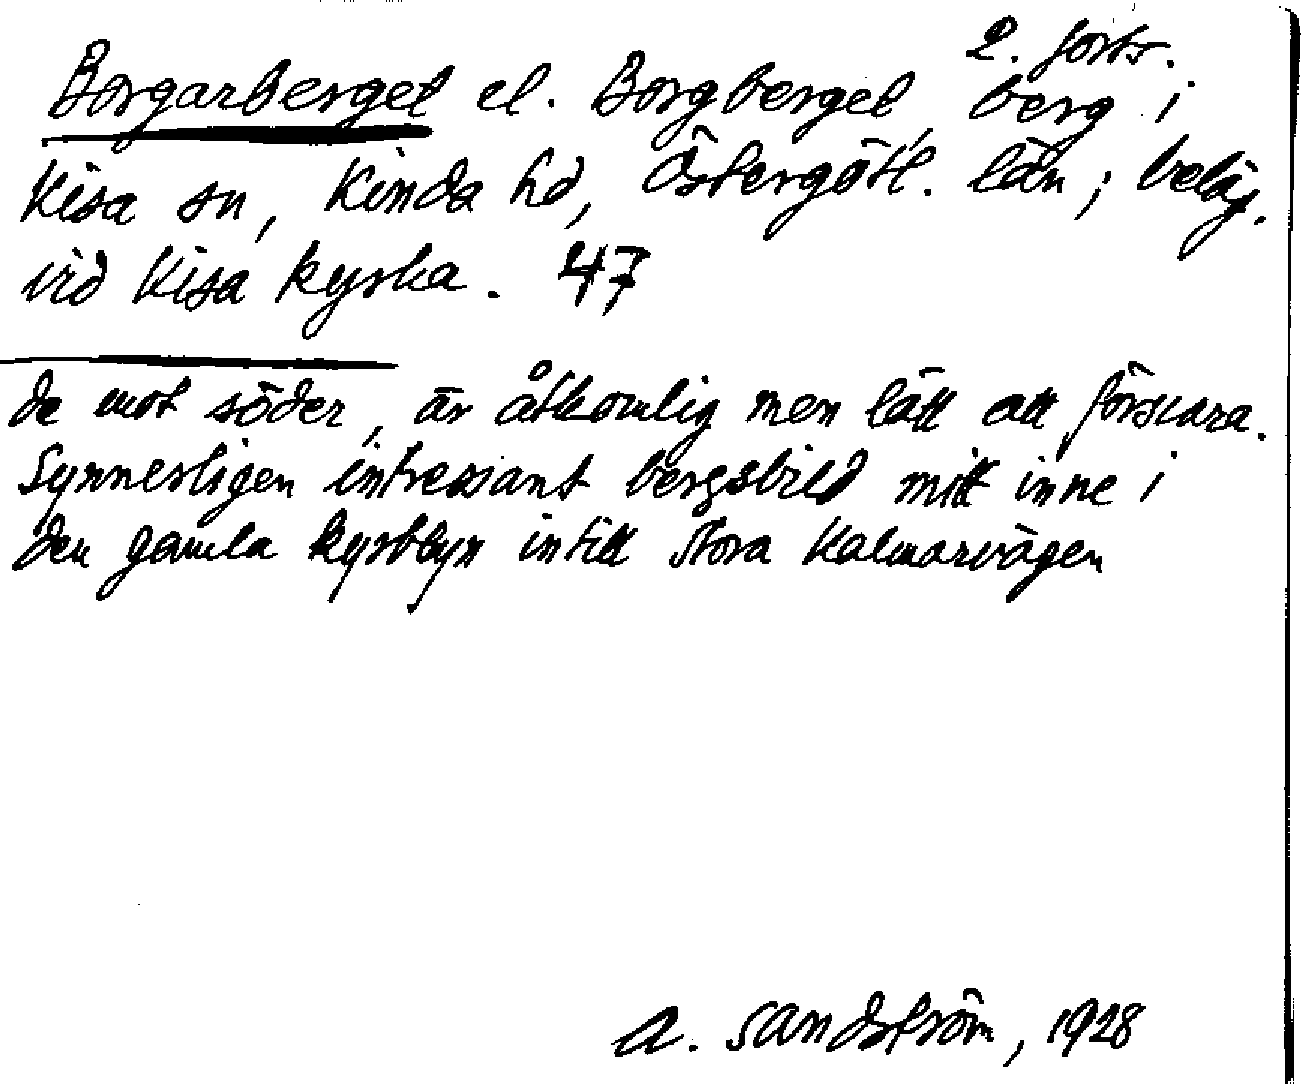 2. forts.
Borgarberget el. Borgberget, berg i
Kisa sn, Kinda hd, Östergötl. län; beläg.
vid Kisa kyrka. 47
de mot söder, är åtkomlig men lätt att försvara.
Synnerligen intressant bergsbild mitt inne i
den gamla kyrkbyn intill stora Kalmarvägen
A. Sandström, 1928